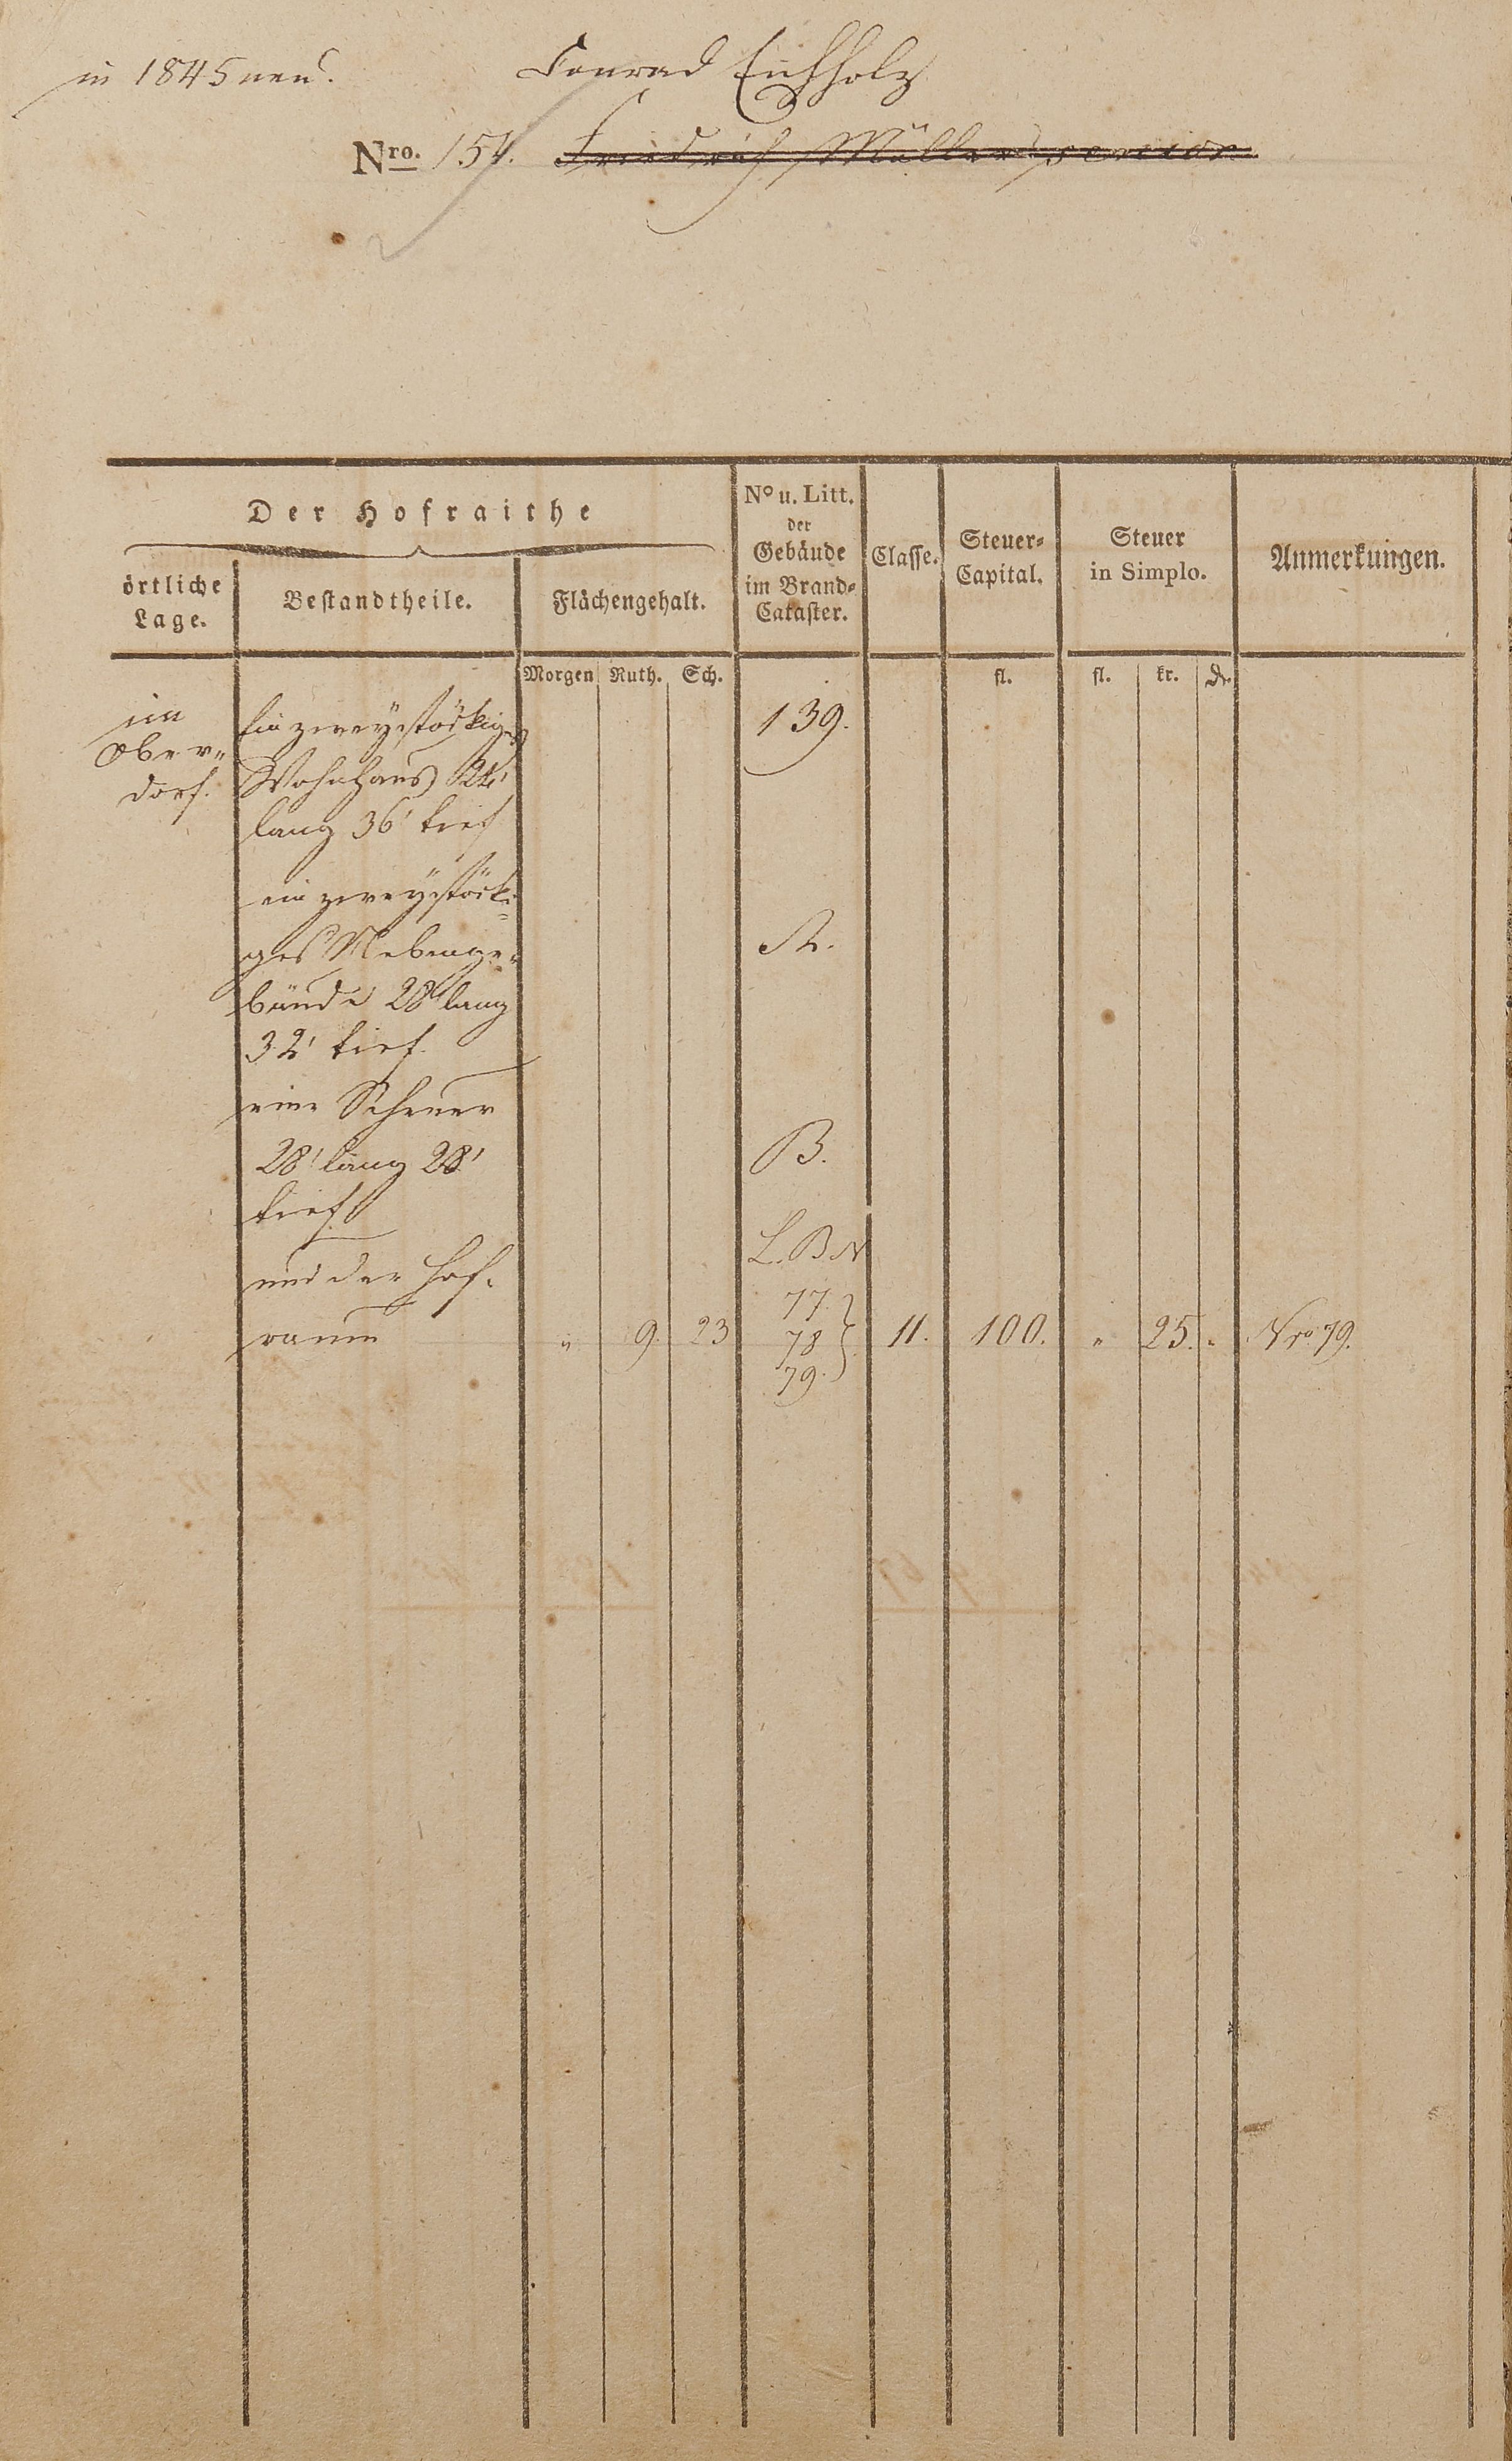 in 1845 neu.
Conrad Eichholz
Nro. 154. Friedrich Müller senior
Der Hofraithe
örtliche Lage.
Bestandtheile.
Flächengehalt.
No u. Litt. der Gebäude im Brand-Cataster.
Classe.
Steuer-Capital.
Steuer in Simplo.
Anmerkungen.
Morgen Ruth. Sch. fl. fl. kr. dr.
im
Ober-
dorf.
Ein zweystöckiges 139.
Wohnhaus 24'
lang 36' tief
ein zweystöcki-
ges Nebenge- A.
bäude 28' lang
32' tief.
eine Scheuer
28' lang 28' B.
tief
L. B N
und der Hof-
77.
raum " 9. 23 78 11. 100. " 25. " Nro 79.
79.